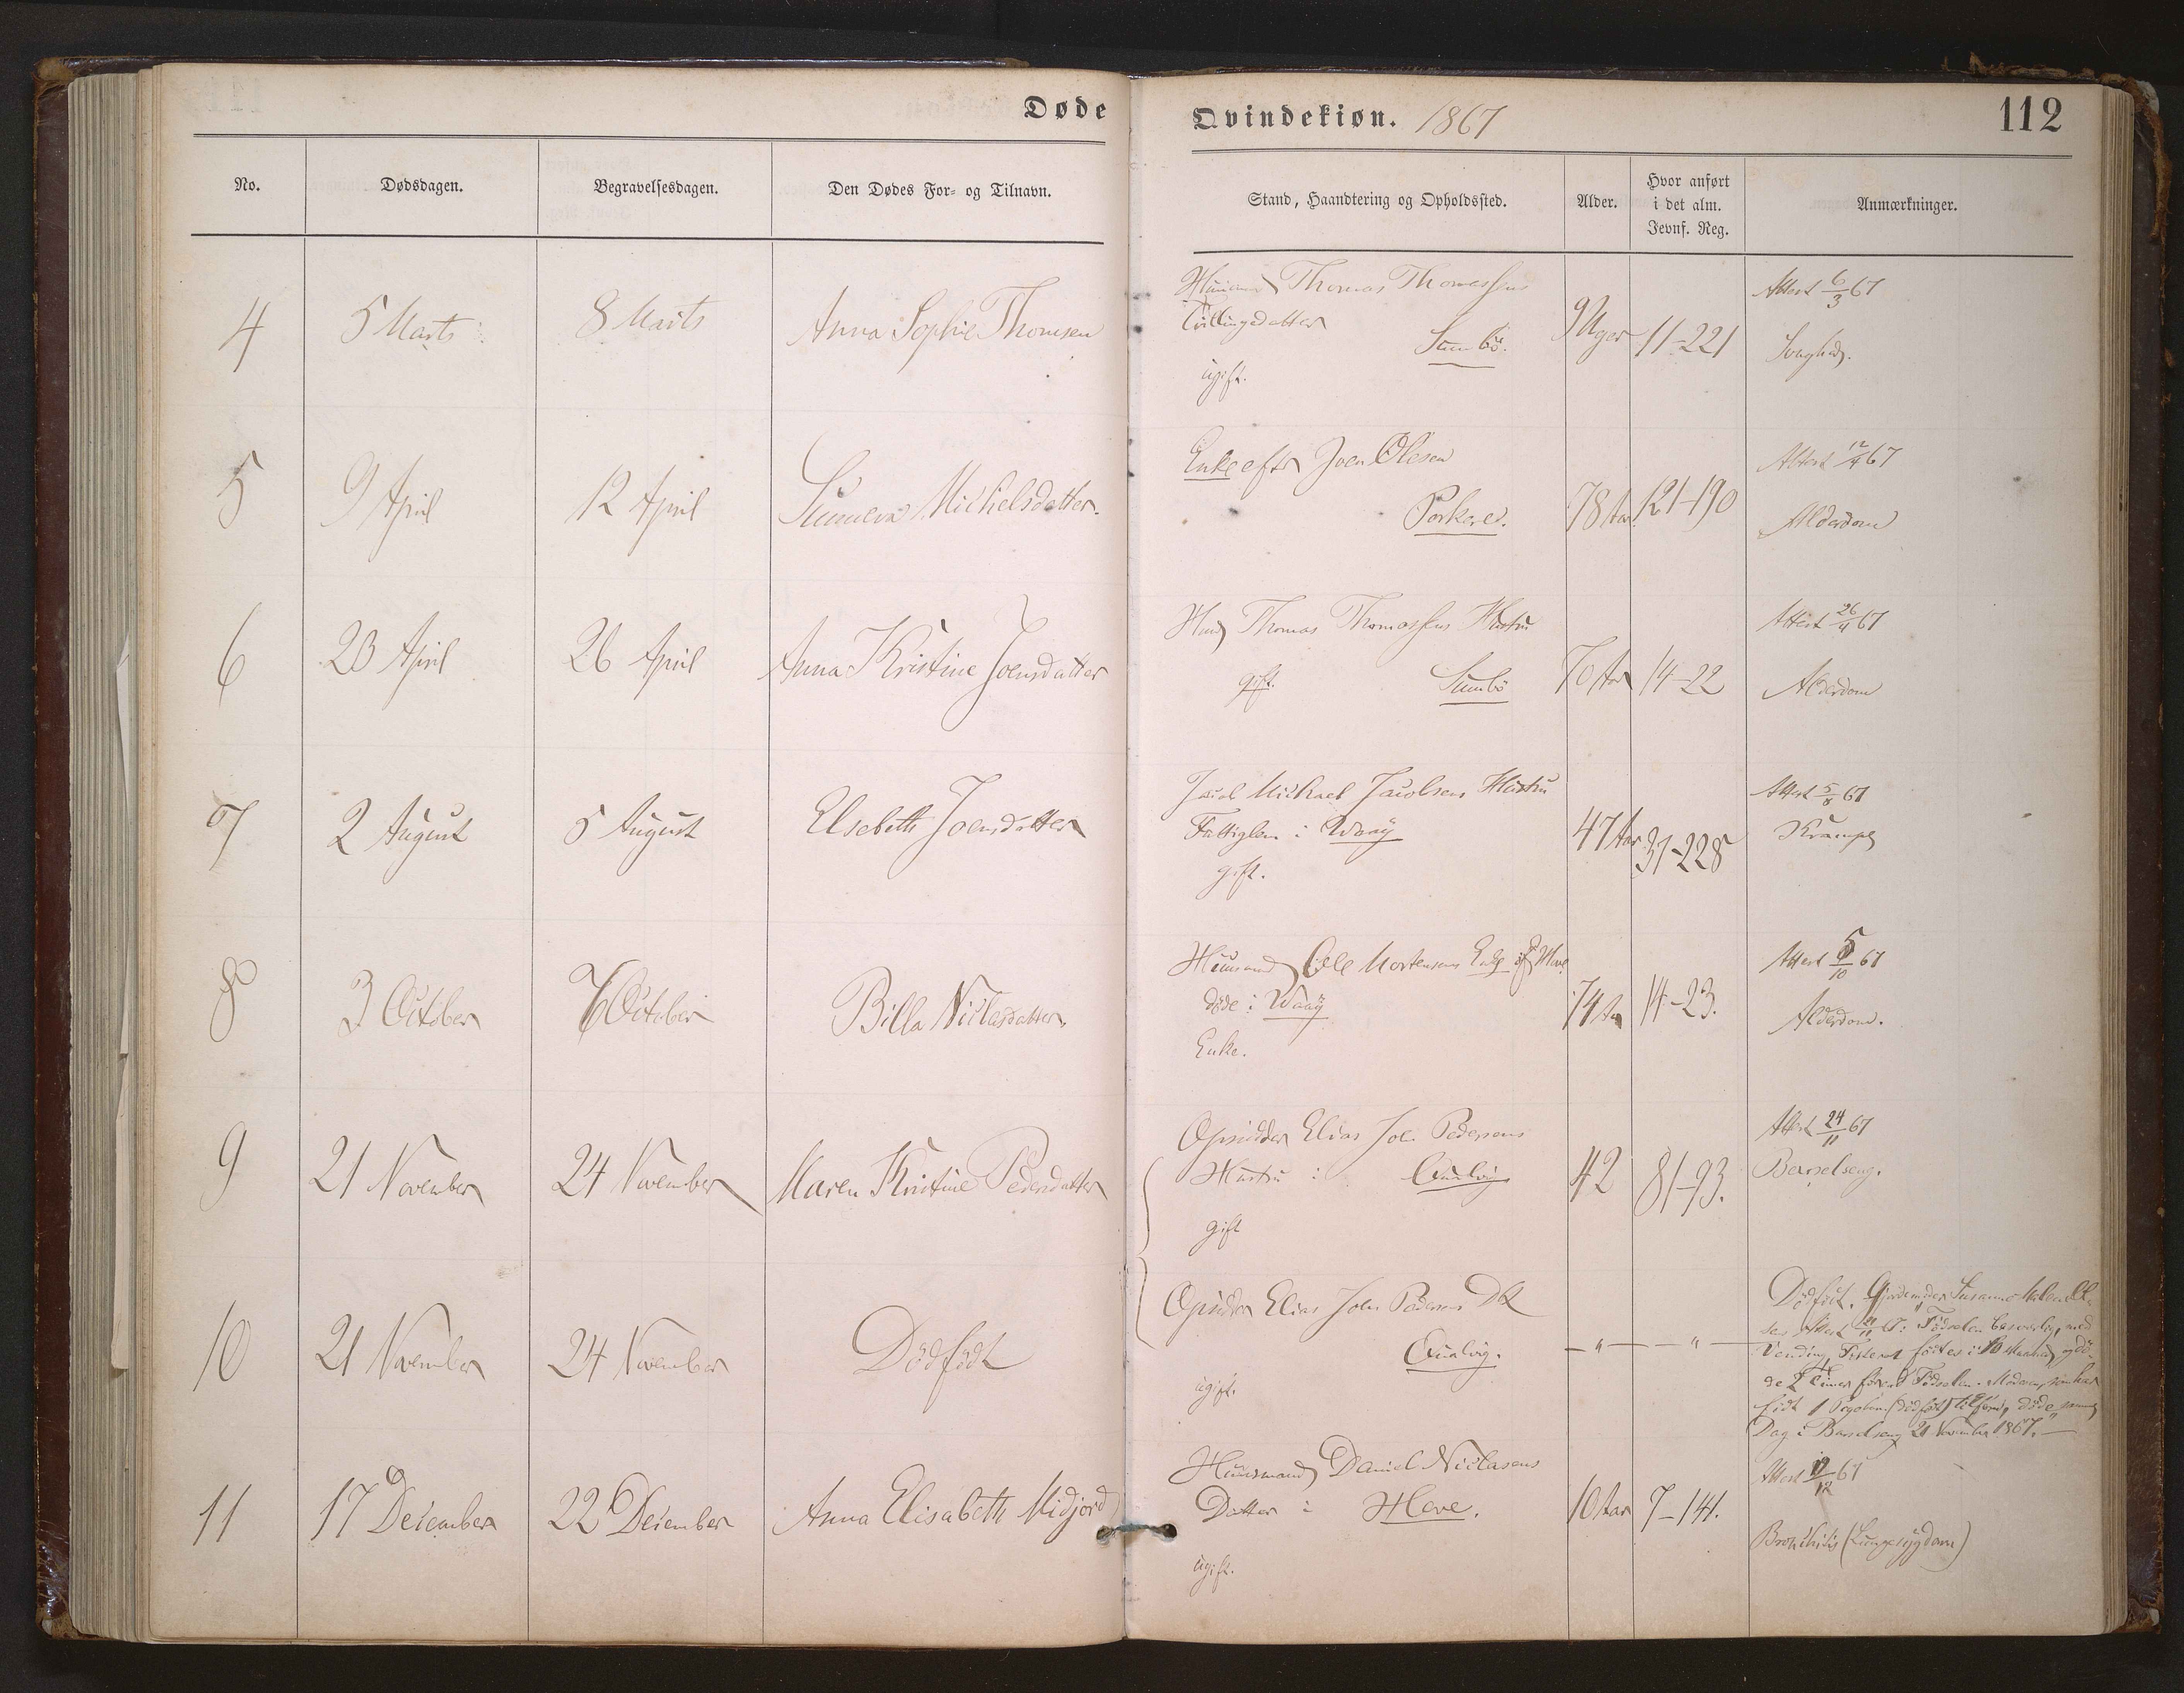 Døde
Qvindekiøn. 1867
112
No.
Dødsdagen.
Begravelsesdagen.
Den Dødes For- og Tilnavn.
Stand, Haandtering og Opholdssted.
Alder.
Hvor anført
i det alm.
Jevnf. Reg.
Anmærkninger.
4
5 Marts
8 Marts
Anna Sophie Thomsen
Thomas Thomassens
Tvillingedatter
Sumbö.
ugift.
9 Uger
11-221
Attest 6/3 67
Svaghed.
5
9 April
12 April
Sunneva Michelsdatter.
Enke efter Joen Olesen
Porkere.
78 Aar
121-190
Attest 12/4 67
Alderdom
6
23 April
26 April
Anna Kristine Joensdatter
Thomas Thomassens Hustru
gift.
Sumbö
70 Aar
14-22
Attest 26/4 67
Alderdom
7
2 August
5 August
Elsebeth Joensdatter
Jacob Michael Jacobsens Hustru
Fattiglem i Waaÿ
gift.
47 Aar
31-228
Attest 5/8 67
Krampe
8
3 October
6 October
Billa Niclasdatter.
Huusmand Ole Mortensens Enke af Hove
döde i Waaÿ
Enke.
74 Aar
14-23.
Attest 5/10 67
Alderdom.
9
21 November
24 November
Maren Kristine Pedersdatter
Opsidder Elias Joe. Pedersens
Hustru i Qualvig
gift
42
81-93.
Attest 24/11 67
Barselseng.
10
21 November
24 November
Dödfödt
Opsidder Elias Joen Pedersens Dtr
Qualvig.
ugift.
— " —
— " —
Dödfödt. Gjordemoder Susanne
Attest 21/11 67: Födselen besværlig, med
Vending, Fosteret födtes i 10 Maaned, og dö-
de 2 Timer förend Födselen. Moderen, som har
födt 1 (dödfödt) tilforn, döde samme
Dag i Barselseng 21 November 1867."
11
17 December
22 December
Anna Elisabeth Midjord
Huusmand Daniel Niclasens
Datter i Hove.
ugift.
10 Aar
7-141.
Attest 67
Bronchitis (Lungesygdom)